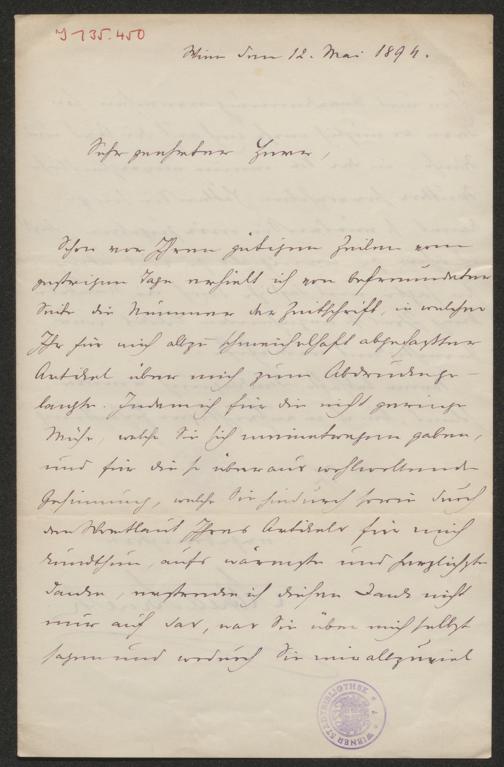 J 135.450
Wien den 12. Mai 1894.
Sehr geehrter Herr,
Schon vor Ihren gütigen Zeilen vom
gestrigen Tage erhielt ich von befreundeter
Seite die Nummer der Zeitschrift, in welcher
Ihr für mich allzu schmeichelhaft abgefaßter
Artikel über mich zum Abdruck ge-
langte. Indem ich für die nicht geringe
Mühe, welche Sie sich meinetwegen gaben,
und für die so überaus wohlwollende
Gesinnung, welche Sie hiedurch sowie durch
den Wortlaut Ihres Artikels für mich
kundthun, aufs wärmste und herzlichste
danke, erstrecke ich diesen Dank nicht
nur auf das, was Sie über mich selbst
sagen und wodurch Sie mir allzuviel
WIENER STADTBIBLIOTHEK